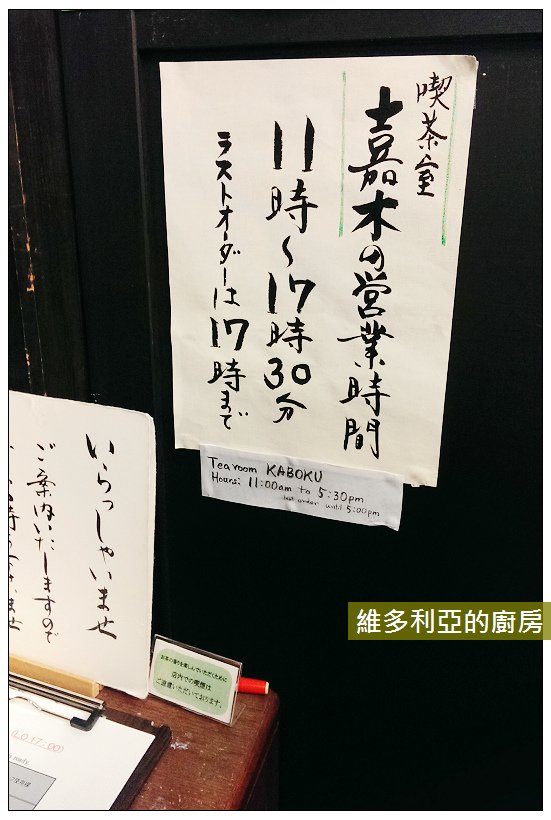 喫茶室
嘉木の営業時間
11時〜17時30分
ラストオーダーは17時まで
Tearoom KABOKU
Hours: 11:00am to 5:30pm
last order until 5:00pm
いらっしゃいませ
ご案内いたしますので
お茶の香りを楽しんでいただくために
店内での喫煙は
ご遠慮いただいております。
(L.O 17:00)
ready.
維多利亞的廚房